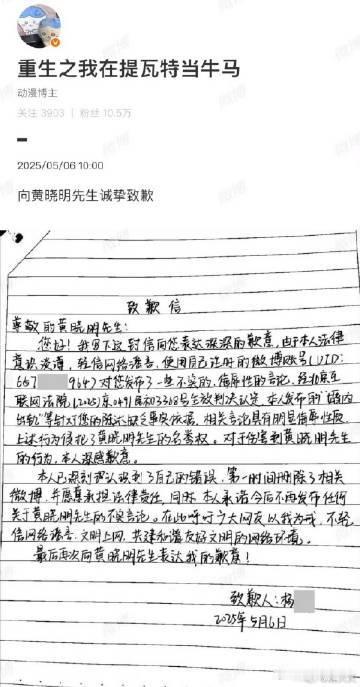 重生之我在提瓦特当牛马
动漫博主
关注 3903 | 粉丝 10.5万
2025/05/06 10:00
向黄晓明先生诚挚致歉
致歉信
尊敬的黄晓明先生:
您好!我写下这封信向您表达深深的歉意,由于本人法律
意识淡薄,轻信网络谣言,使用自己注册的微博账号(UID:
667 964)对您发布了一些不实的、侮辱性的言论,经北京互
联网法院(2025)京0491民初3368号生效判决认定,本人发布的"婚内
出轨"等针对您的陈述缺乏事实依据,相关言论具有明显侮辱性质
上述行为侵犯了黄晓明先生的名誉权。对于伤害到黄晓明先生
的行为,本人深感歉意。
本人已深刻认识到了自己的错误,第一时间删除了相关
微博,并愿意承担法律责任,同时本人承诺今后不再发布任何
关于黄晓明先生的不实言论。在此呼吁广大网友以我为戒,不轻
信网络谣言,文明上网,共建和谐友好文明的网络环境。
最后再次向黄晓明先生表达我的歉意!
致歉人:杨
2025年5月6日